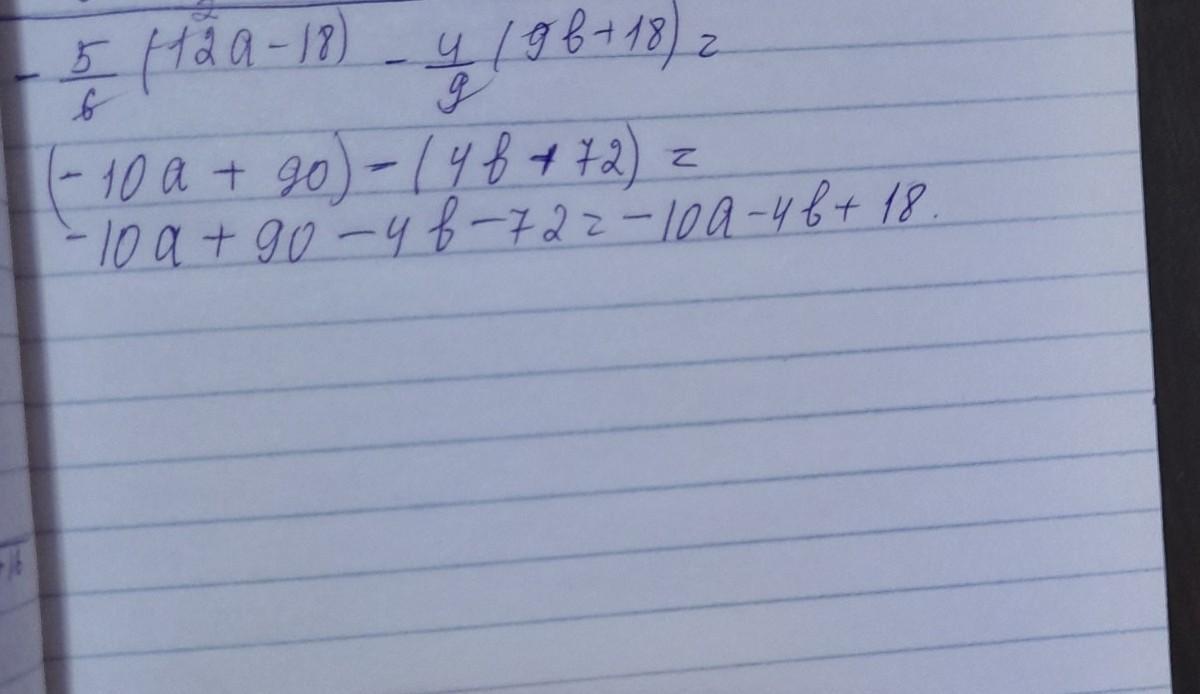 - 5/6 (12a - 18) - 4/9 (9b + 18) =
(-10a + 90) - (4b + 72) =
-10a + 90 - 4b - 72 = -10a - 4b + 18.